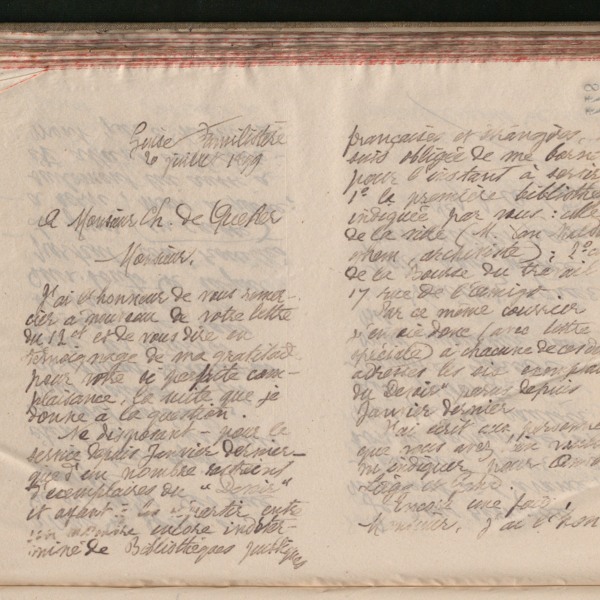 Guise Familistère
20 juillet 1899
A Monsieur Ch. de Queker
Monsieur,
J'ai l'honneur de vous remer-
cier à nouveau de votre lettre
du 12 et et de vous dire en
témoignage de ma gratitude
pour votre si parfaite com-
plaisance, la suite que je
donne à la question.
Ne disposant pour le
service depuis Janvier dernier
que d'un nombre restreint
d'exemplaires du "Devoir"
et ayant à les répartir entre
un nombre encore indéter-
miné de Bibliothèques publiques
françaises et étrangères,
suis obligée de me born
pour l'instant à servir
1º la première biblioth
indiquée par vous : celle
de la ville (M.
archiviste) ; 2º
de la Bourse du travail
17 rue de
Par ce même courrier
j'envoie donc (avec lettre
spéciale) à chacune de ces
adresses les six exempl
du Devoir" parus depuis
Janvier dernier
J'ai écrit aux personnes
que vous avez bien
m'indiquer pour
Liège et
Encore une fois,
Monsieur, j'ai l'hon